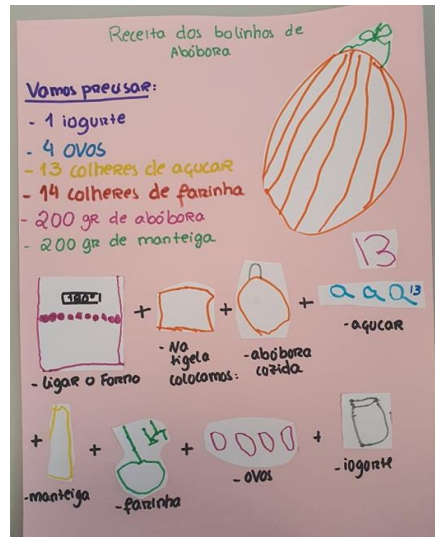 Receita dos bolinhos de
Abóbora
Vamos precisar:
- 1 iogurte
- 4 ovos
- 13 colheres de açucar
- 14 colheres de farinha
- 200 gr de abóbora
- 200 gr de manteiga
13
180°
+
+
+
a a a 13
- ligar o forno
- Na
tigela
colocamos:
- abóbora
cozida
- açucar
+
+
14
+
+
- manteiga
- farinha
- ovos
- iogorte